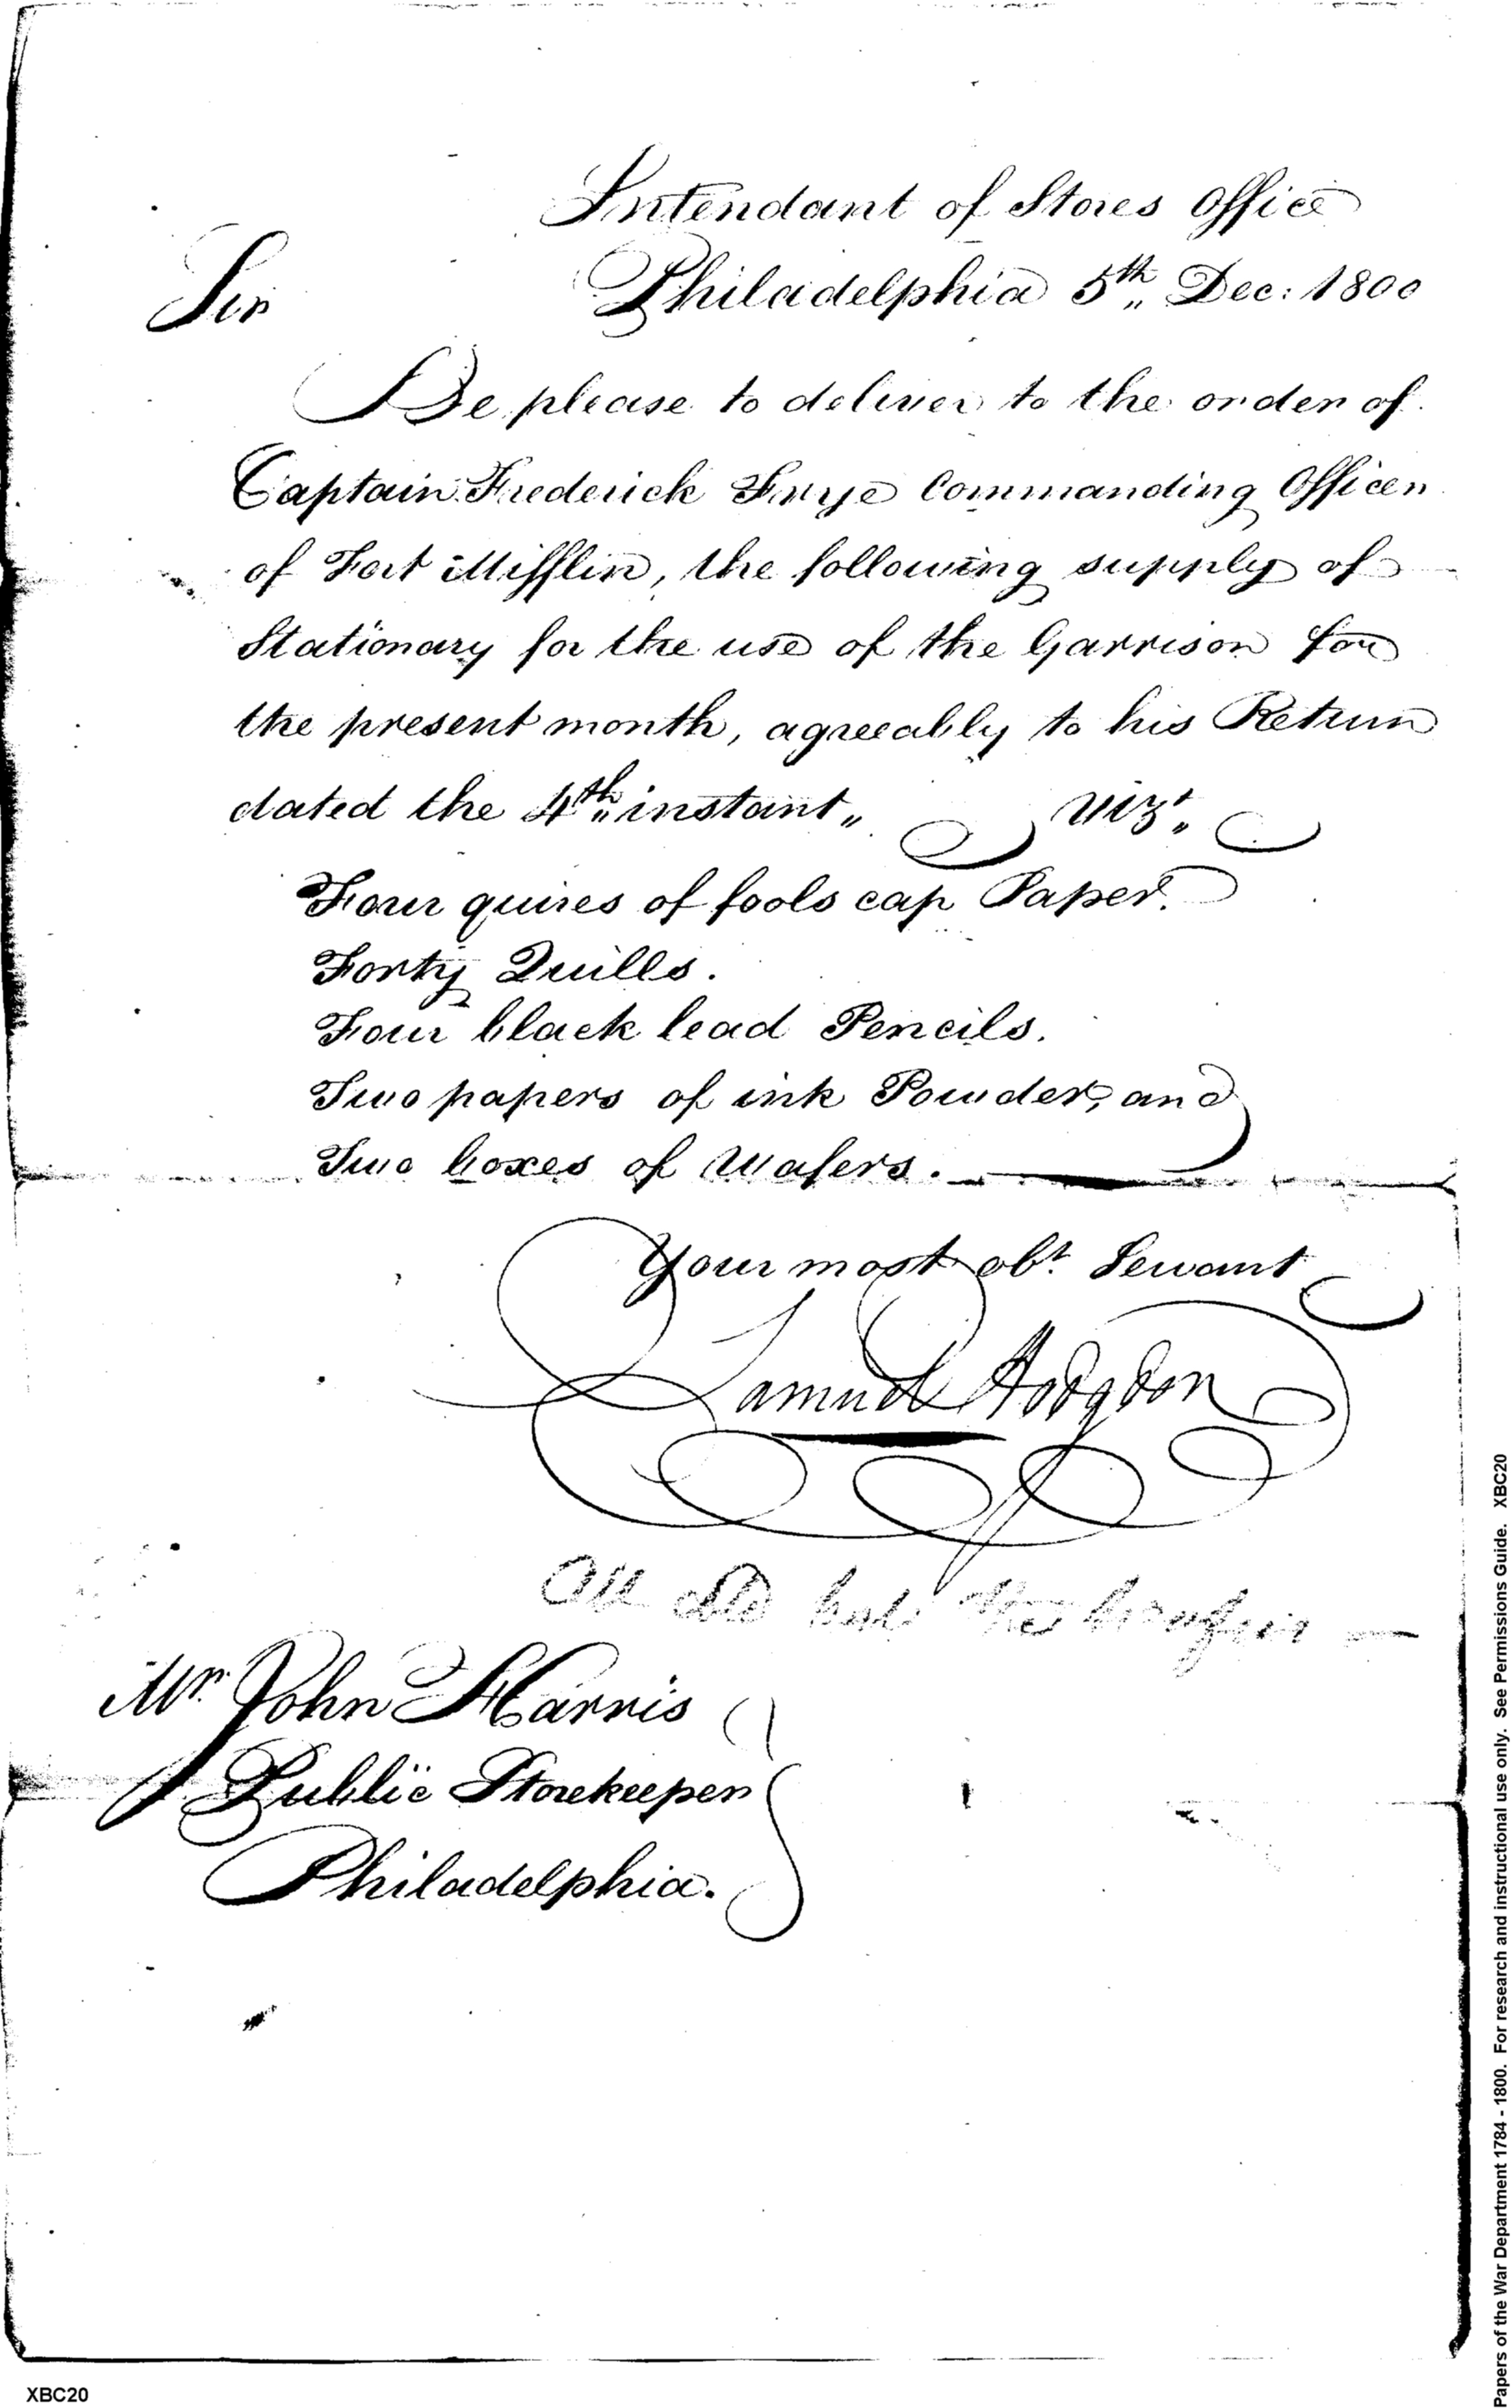 Intendant of Stores Office
Philadelphia 5th Dec: 1800
Sir
Be please to deliver to the order of
Captain Frederick Frye Commanding Officer
of Fort Mifflin, the following supply of
Stationary for the use of the Garrison for
the present month, agreeably to his Return
dated the 4th instant„ Vizt„
Four quires of fools cap Paper.
Forty Quills.
Four black lead Pencils.
Two papers of ink Powder, and
Two boxes of Wafers.
Your most obt Servant
Samuel Hodgdon
All
Mr. John Harris
Public Storekeeper
Philadelphia.
XBC20
Papers of the War Department 1784 - 1800. For research and instructional use only. See Permissions Guide. XBC20